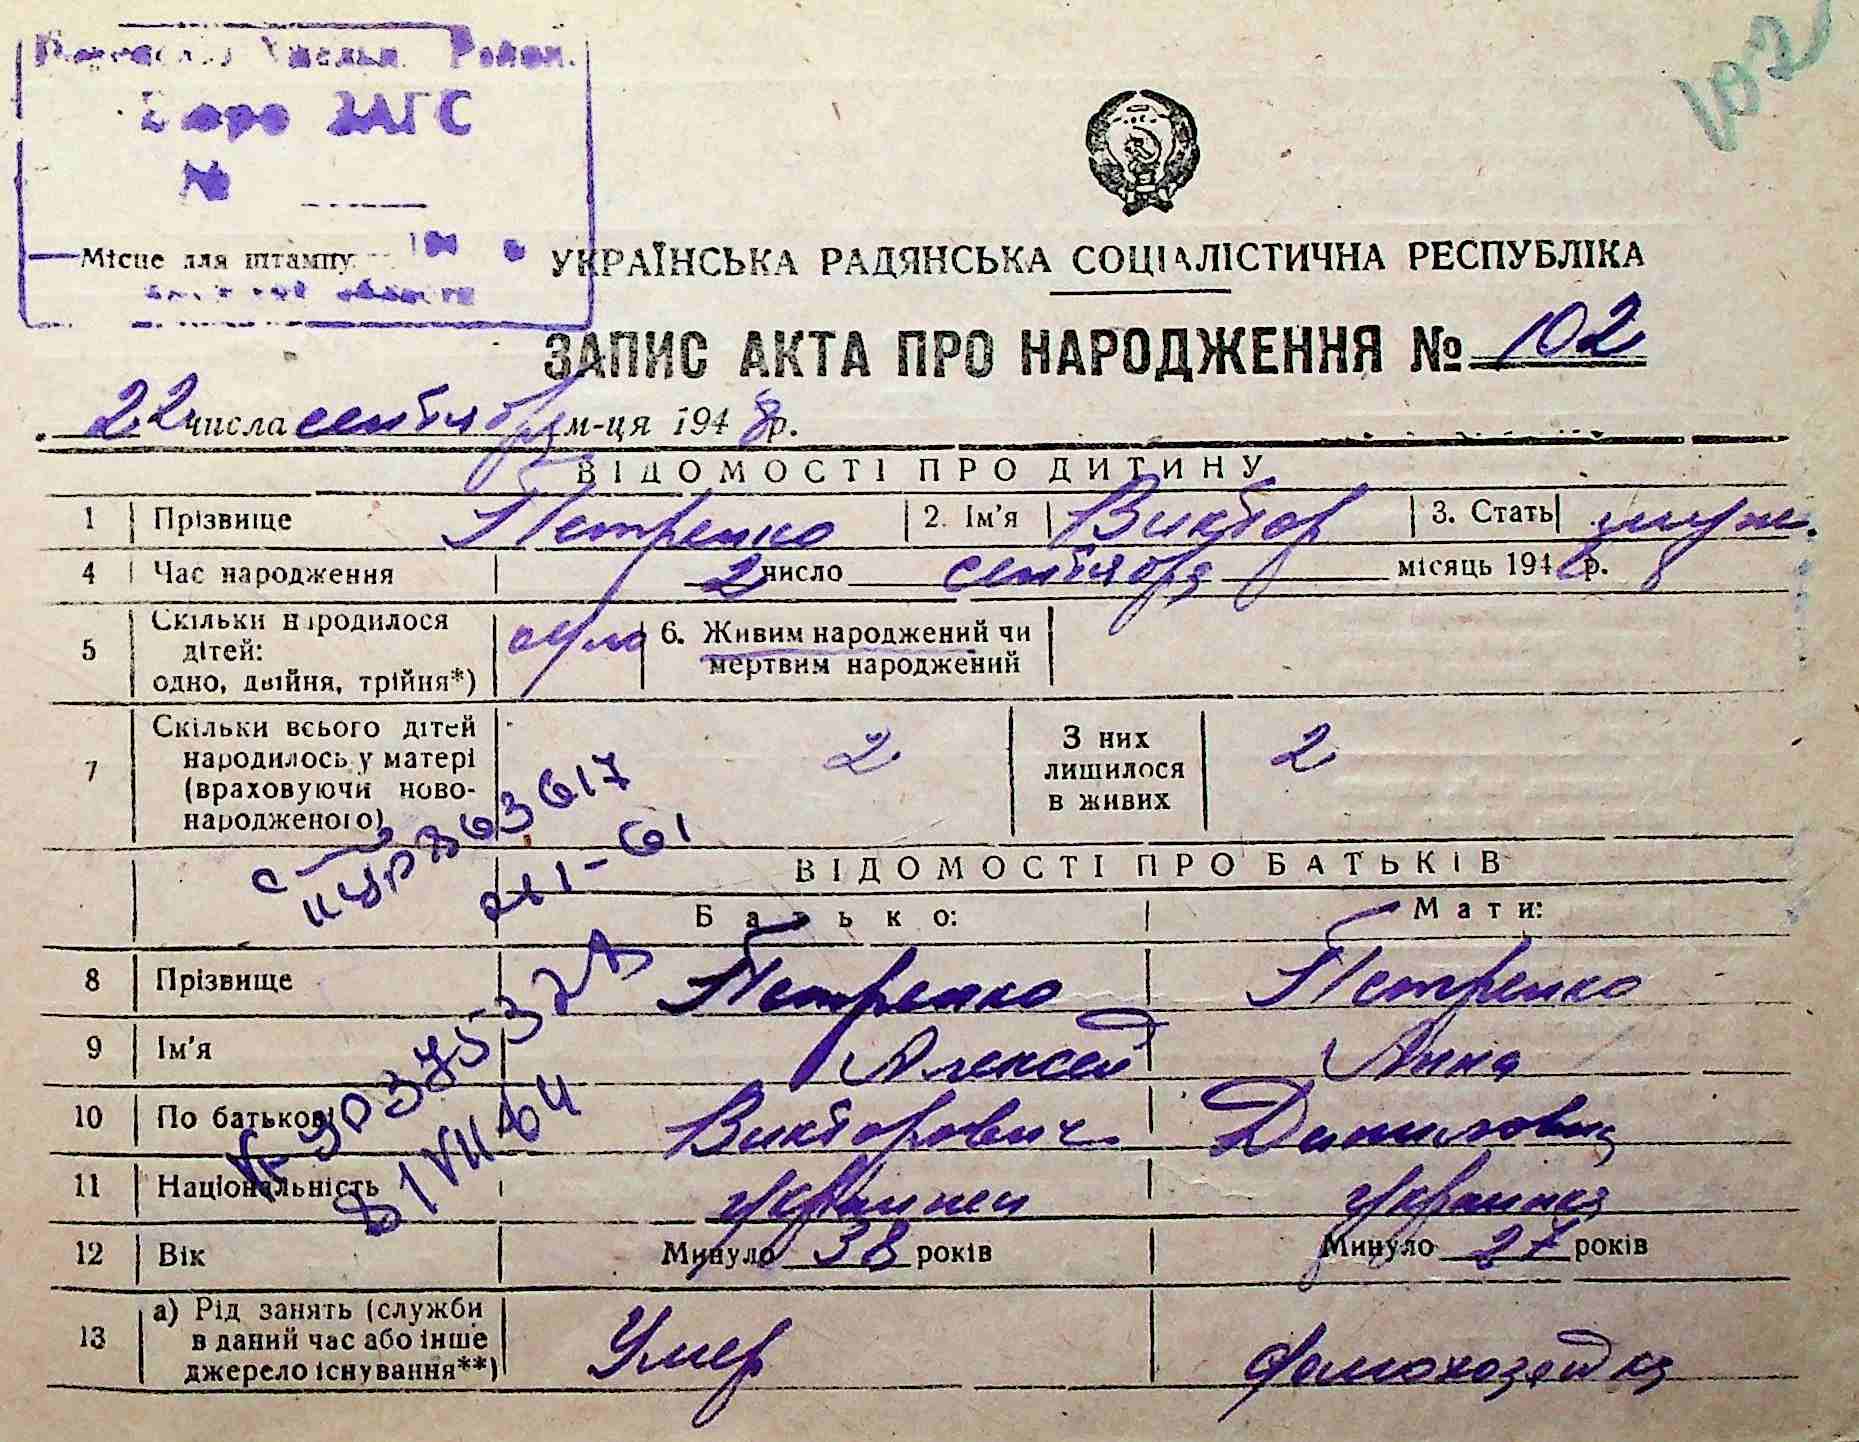 102
Район.
Бюро ЗАГС
№
Місце для штампу
области
УКРАЇНСЬКА РАДЯНСЬКА СОЦІАЛІСТИЧНА РЕСПУБЛІКА
ЗАПИС АКТА ПРО НАРОДЖЕННЯ № 102
22 числа сентября м-ця 1948 р.
ВІДОМОСТІ ПРО ДИТИНУ
1 Прізвище Петренко 2. Ім'я Виктор 3. Стать муж.
4 Час народження 2 число сентября місяць 1948 р.
5 Скільки народилося дітей: одно, двійня, трійня*) 6. Живим народжений чи мертвим народжений
7 Скільки всього дітей народилось у матері (враховуючи ново-народженого) 2 З них лишилося в живих 2
ВІДОМОСТІ ПРО БАТЬКІВ
Батько: Мати:
8 Прізвище Петренко Петренко
9 Ім'я Алексей Анна
10 По батькові Викторович Даниловна
11 Національність украинец украинка
12 Вік Минуло 38 років Минуло 27 років
13 а) Рід занять (служби в даний час або інше джерело існування**) Умер домохозяйка